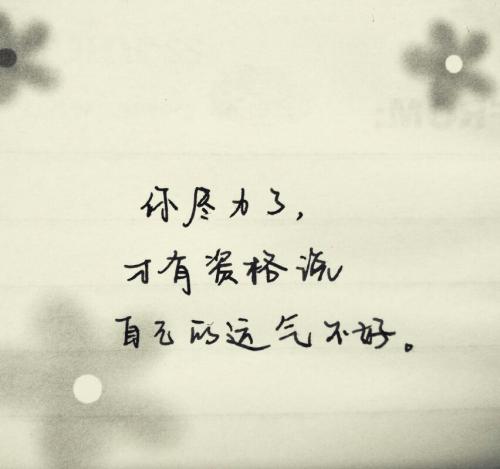 你尽力了，
才有资格说
自己的运气不好。